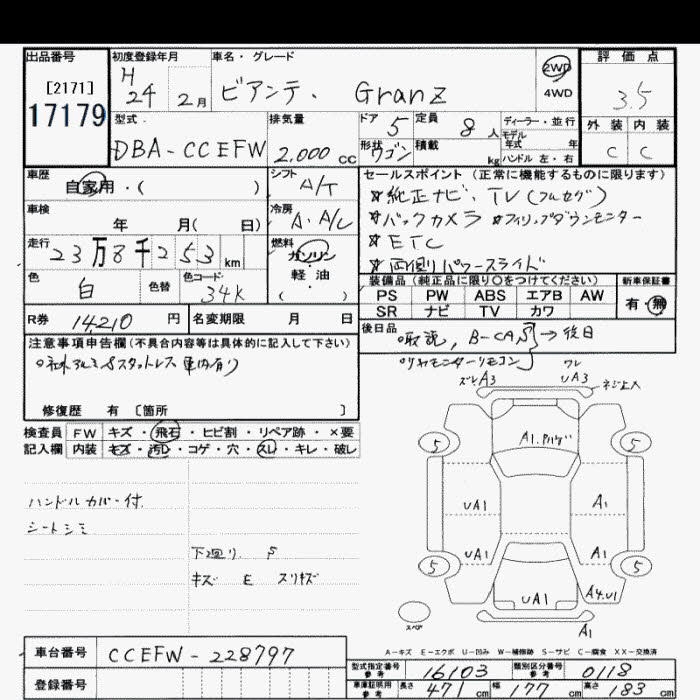 出品番号
[2171]
17179
初度登録年月
H
24 2月
車名・グレード
ビアンテ. Granz
2WD
4WD
評価点
3.5
外装 内装
C C
型式
DBA-CCEFW
排気量
2.000 cc
ドア 5
定員 8 人
形状 ワゴン
積載 kg
ディーラー・並行
モデル
年式 年
ハンドル 左・右
車歴
自家用・( )
シフト A/T
車検
年 月( 日)
冷房 A.A/C
走行
23万8千253 km
燃料
ガソリン
軽・油
( )
色 白
色替
色コード 34K
R券 14,210 円
名変期限 月 日
セールスポイント (正常に機能するものに限ります)
☆純正ナビ、TV(フルセグ)
☆バックカメラ ☆フィリップダウンモニター
☆ETC
☆両側リパワースライド
装備品 (純正品に限り○をつけてください)
PS PW ABS エアB AW
SR ナビ TV カワ
新車保証書
有・無
後日品
○取説, B-CAS→後日
○リヤモニターリモコン
注意事項申告欄 (不具合内容等は具体的に記入して下さい)
○社外アルミ&スタットレス 車内有り
修復歴 有 [箇所 ]
検査員 FW キズ・飛石・ヒビ割・リペア跡・×要
記入欄 内装 キズ・汚レ・コゲ・穴・スレ・キレ・破レ
ハンドルカバー付.
シートシミ
下廻り. S
キズ E スリキズ
A3 UA3
ワレ
5 5
UA1 A1
UA1 A1
5 5
UA1 A4.U1
A1
スペア
A-キズ E-エクボ U-凹み W-補修跡 S-サビ C-腐食 XX-交換済
車台番号 CCEFW-228797
登録番号
型式指定番号
参考 16103
類別区分番号
参考 0118
車庫証明用
参考 長さ 471 cm 幅 177 cm 高さ 183 cm